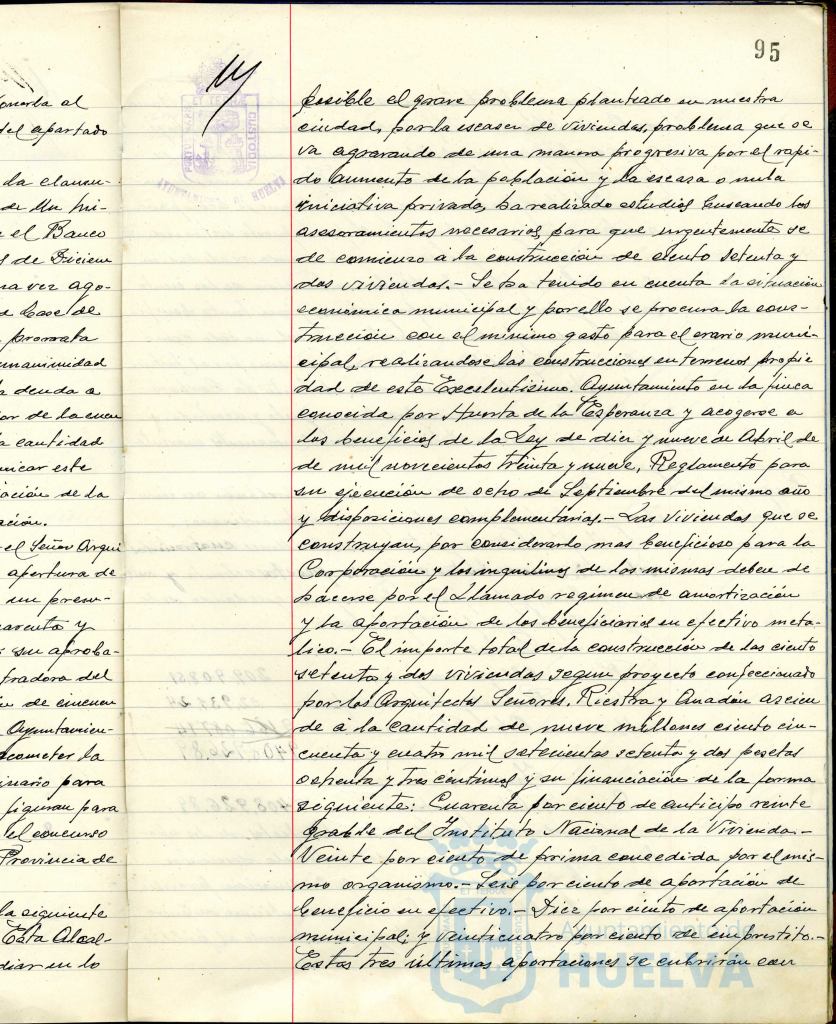 95
onerla al
del apartado
la clausu-
e el Banco
s de Diciem
na vez ago-
base de
prorrata
unanimidad
deuda a
or de la cuen
a cantidad
nicar este
ación de la
ación.
el Señor Arqui
apertura de
un presu-
arenta y
su aproba-
tradora del
de cincuen
Ayuntamien-
acometer la
inario para
figuran para
el concurso
Provincia de
la siguiente
Esta Alcal-
diar en lo
posible el grave problema planteado en nuestra
ciudad, por la escasez de viviendas, problema que se
va agravando de una manera progresiva por el rapi-
do aumento de la población y la escasa o nula
iniciativa privada, ha realizado estudios buscando los
asesoramientos necesarios para que urgentemente se
de comienzo á la construcción de ciento setenta y
dos viviendas.- Se ha tenido en cuenta la situación
económica municipal y por ello se procura la cons-
trucción con el minimo gasto para el erario muni-
cipal, realizandose las construcciones en terrenos propie
dad de este Excelentisimo. Ayuntamiento en la finca
conocida por Huerta de la Esperanza y acogerse a
los beneficios de la Ley de diez y nueve de Abril de
de mil novecientos treinta y nueve, Reglamento para
su ejecución de ocho de Septiembre del mismo año
y disposiciones complementarias.- Las viviendas que se
construyan, por considerarlo mas beneficioso para la
Corporación y los inquilinos de las mismas deben de
hacerse por el llamado regimen de amortización
y la aportación de los beneficiarios en efectivo meta-
lico.- El importe total de la construcción de las ciento
setenta y dos viviendas segun proyecto confeccionado
por los Arquitectos Señores, Riestra y Anadón ascien
de á la cantidad de nueve millones ciento cin-
cuenta y cuatro mil setecientas setenta y dos pesetas
ochenta y tres centimos y su financiación de la forma
siguiente: Cuarenta por ciento de anticipo reinte
grable del Instituto Nacional de la Vivienda.-
Veinte por ciento de prima concedida por el mis-
mo organismo.- Seis por ciento de aportación de
beneficio en efectivo.- Diez por ciento de aportación
municipal; y veinticuatro por ciento de emprestito.-
Estas tres últimas aportaciones se cubrirán con
Ayuntamiento de
HUELVA